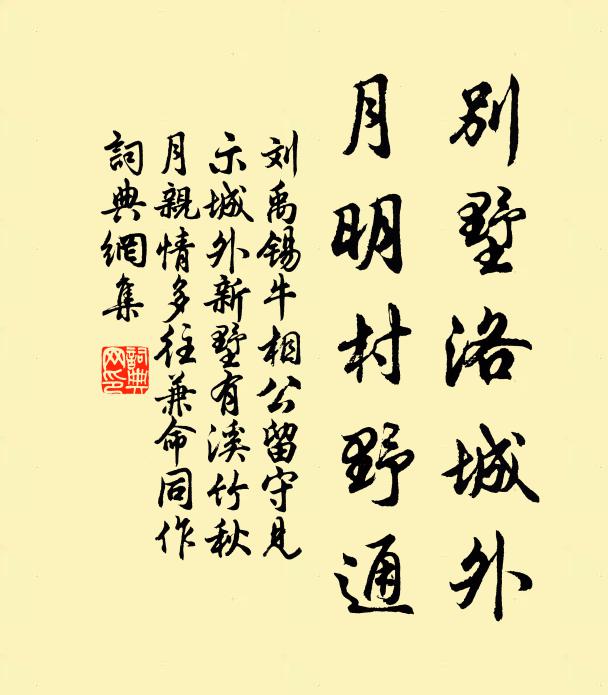 別墅洛城外
月明村野通
刘禹锡牛相公留守見
示城外新墅有溪竹秋
月親情多往兼命同作
詞典網集
詞典
网印